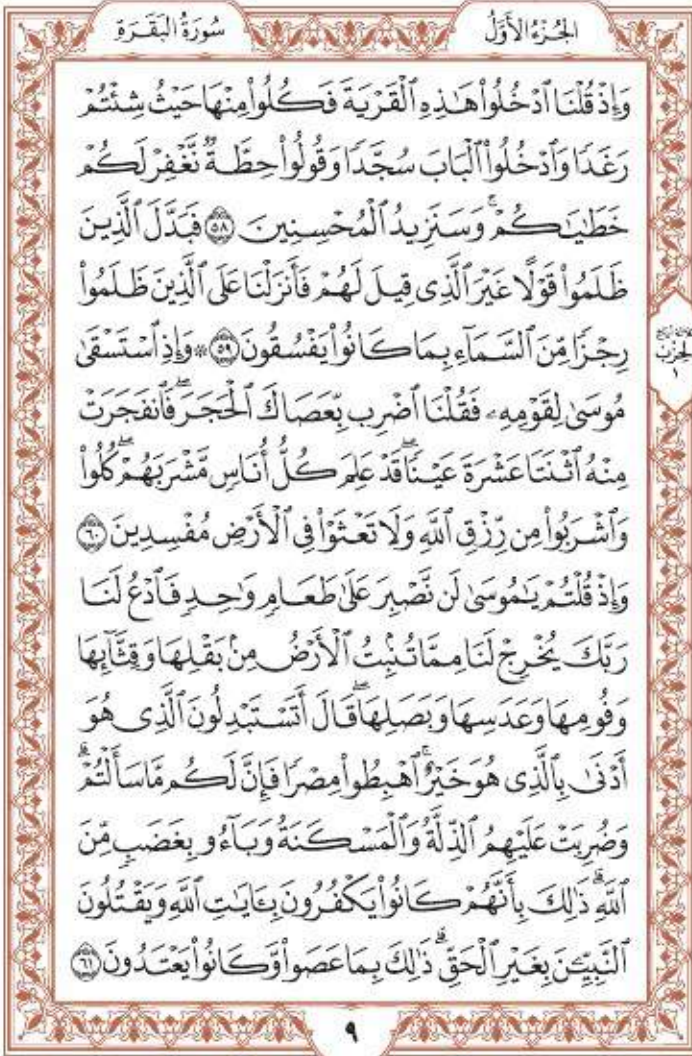 سُورَةُ الْبَقَرَةِ
الجُزْءُ الأَوَّلُ
وَإِذْ قُلْنَا ٱدْخُلُوا۟ هَـٰذِهِ ٱلْقَرْيَةَ فَكُلُوا۟ مِنْهَا حَيْثُ شِئْتُمْ
رَغَدًا وَٱدْخُلُوا۟ ٱلْبَابَ سُجَّدًا وَقُولُوا۟ حِطَّةٌ نَّغْفِرْ لَكُمْ
خَطَـٰيَـٰكُمْ ۚ وَسَنَزِيدُ ٱلْمُحْسِنِينَ ۝٥٨ فَبَدَّلَ ٱلَّذِينَ
ظَلَمُوا۟ قَوْلًا غَيْرَ ٱلَّذِى قِيلَ لَهُمْ فَأَنزَلْنَا عَلَى ٱلَّذِينَ ظَلَمُوا۟
رِجْزًا مِّنَ ٱلسَّمَآءِ بِمَا كَانُوا۟ يَفْسُقُونَ ۝٥٩ * وَإِذِ ٱسْتَسْقَىٰ
مُوسَىٰ لِقَوْمِهِۦ فَقُلْنَا ٱضْرِب بِّعَصَاكَ ٱلْحَجَرَ ۖ فَٱنفَجَرَتْ
مِنْهُ ٱثْنَتَا عَشْرَةَ عَيْنًا ۖ قَدْ عَلِمَ كُلُّ أُنَاسٍ مَّشْرَبَهُمْ ۖ كُلُوا۟
وَٱشْرَبُوا۟ مِن رِّزْقِ ٱللَّهِ وَلَا تَعْثَوْا۟ فِى ٱلْأَرْضِ مُفْسِدِينَ ۝٦٠
وَإِذْ قُلْتُمْ يَـٰمُوسَىٰ لَن نَّصْبِرَ عَلَىٰ طَعَامٍ وَٰحِدٍ فَٱدْعُ لَنَا
رَبَّكَ يُخْرِجْ لَنَا مِمَّا تُنۢبِتُ ٱلْأَرْضُ مِنۢ بَقْلِهَا وَقِثَّآئِهَا
وَفُومِهَا وَعَدَسِهَا وَبَصَلِهَا ۖ قَالَ أَتَسْتَبْدِلُونَ ٱلَّذِى هُوَ
أَدْنَىٰ بِٱلَّذِى هُوَ خَيْرٌ ۚ ٱهْبِطُوا۟ مِصْرًا فَإِنَّ لَكُم مَّا سَأَلْتُمْ ۗ
وَضُرِبَتْ عَلَيْهِمُ ٱلذِّلَّةُ وَٱلْمَسْكَنَةُ وَبَآءُو بِغَضَبٍ مِّنَ
ٱللَّهِ ۗ ذَٰلِكَ بِأَنَّهُمْ كَانُوا۟ يَكْفُرُونَ بِـَٔايَـٰتِ ٱللَّهِ وَيَقْتُلُونَ
ٱلنَّبِيِّـۧنَ بِغَيْرِ ٱلْحَقِّ ۗ ذَٰلِكَ بِمَا عَصَوا۟ وَّكَانُوا۟ يَعْتَدُونَ ۝٦١
الحِزْب
١
٩